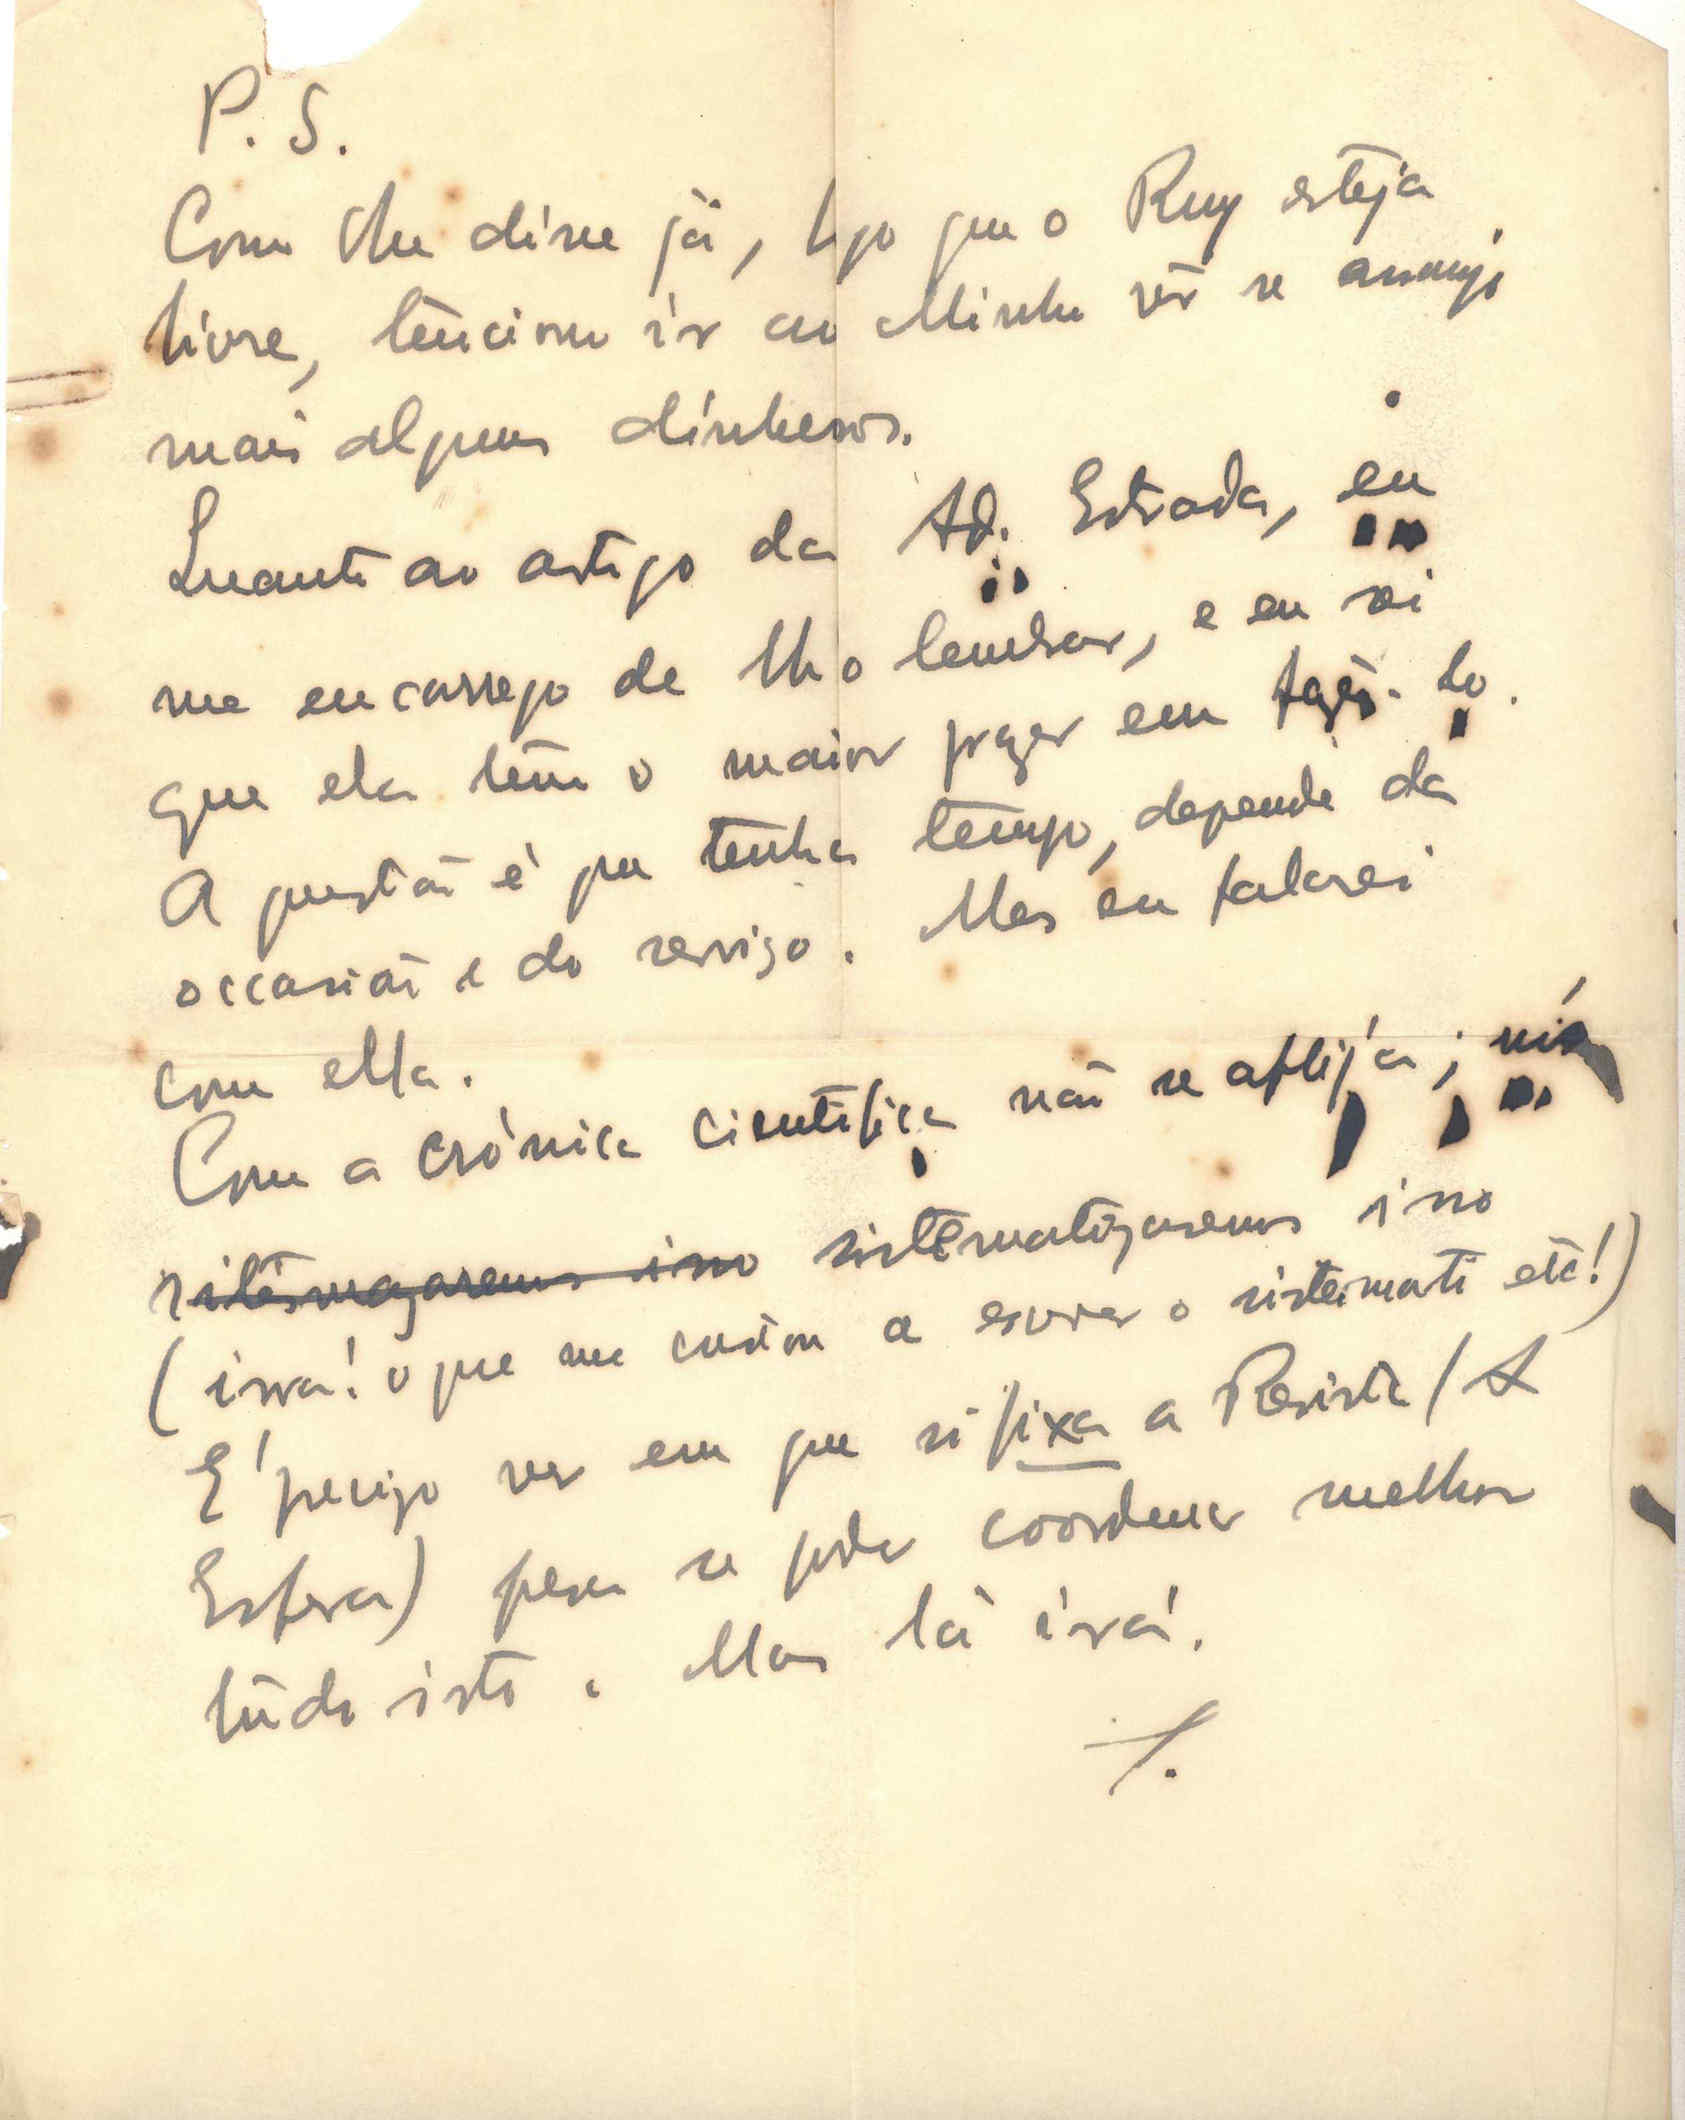 P. S.
Como lhe disse já, logo que o Ruy esteja
livre, tenciono ir ao Minho vêr se arranjo
mais alguns dinheiros.
Quanto ao artigo da Ad. Estrada, eu
me encarrego de lho lembrar, e eu sei
que ela tem o maior prazer em fazê-lo.
A questão é que tenha tempo, depende da
occasião e do serviço. Mas eu falarei
com ella.
Com a crónica cientifica não se aflija; nós
sistematizaremos isso
(irra! o que me custou a escrever o sistemati etc!)
É preciso ver em que si fixa a Revista (A
Esfera) para se poder coordenar melhor
tudo isto. Mas lá irá.